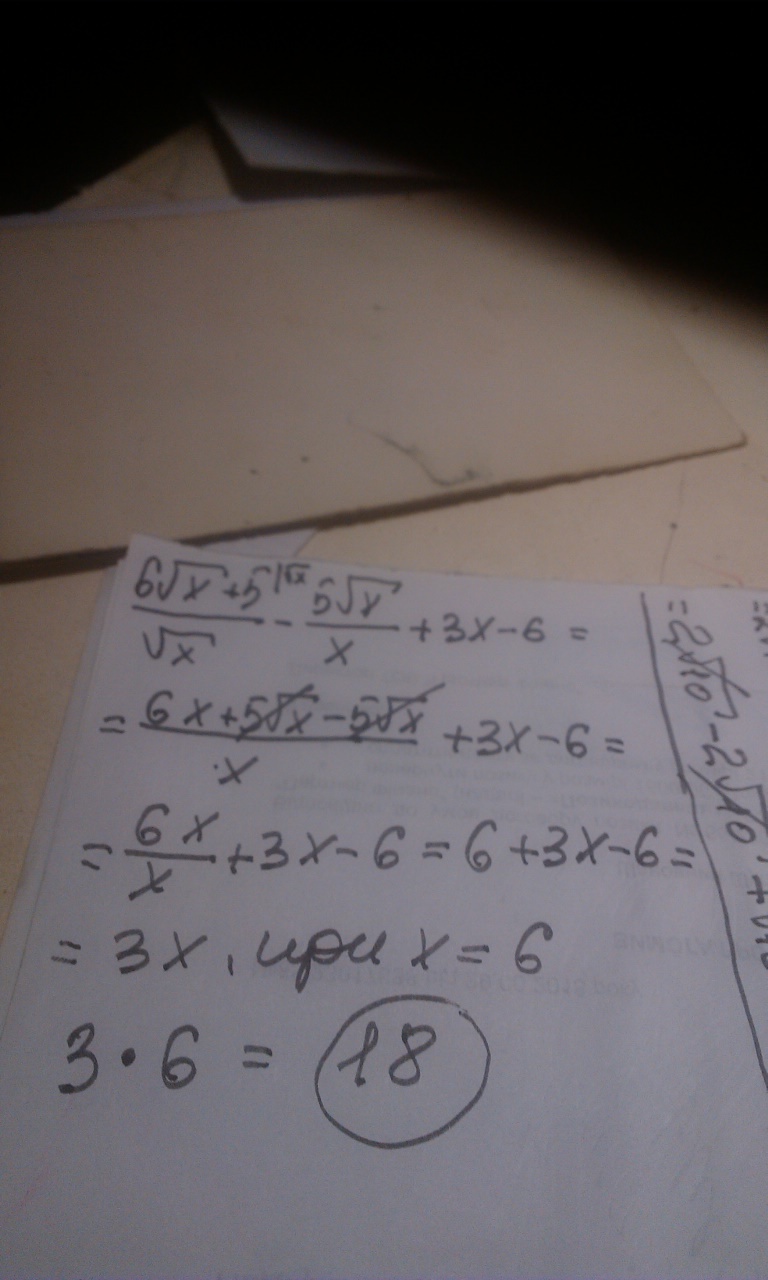 (6√x+5)/√x |√x - 5√x/x + 3x - 6 =
= (6x+5√x-5√x)/x + 3x - 6 =
= 6x/x + 3x - 6 = 6 + 3x - 6 =
= 3x, при x = 6
3 • 6 = 18
=2√10 - 2√10 +